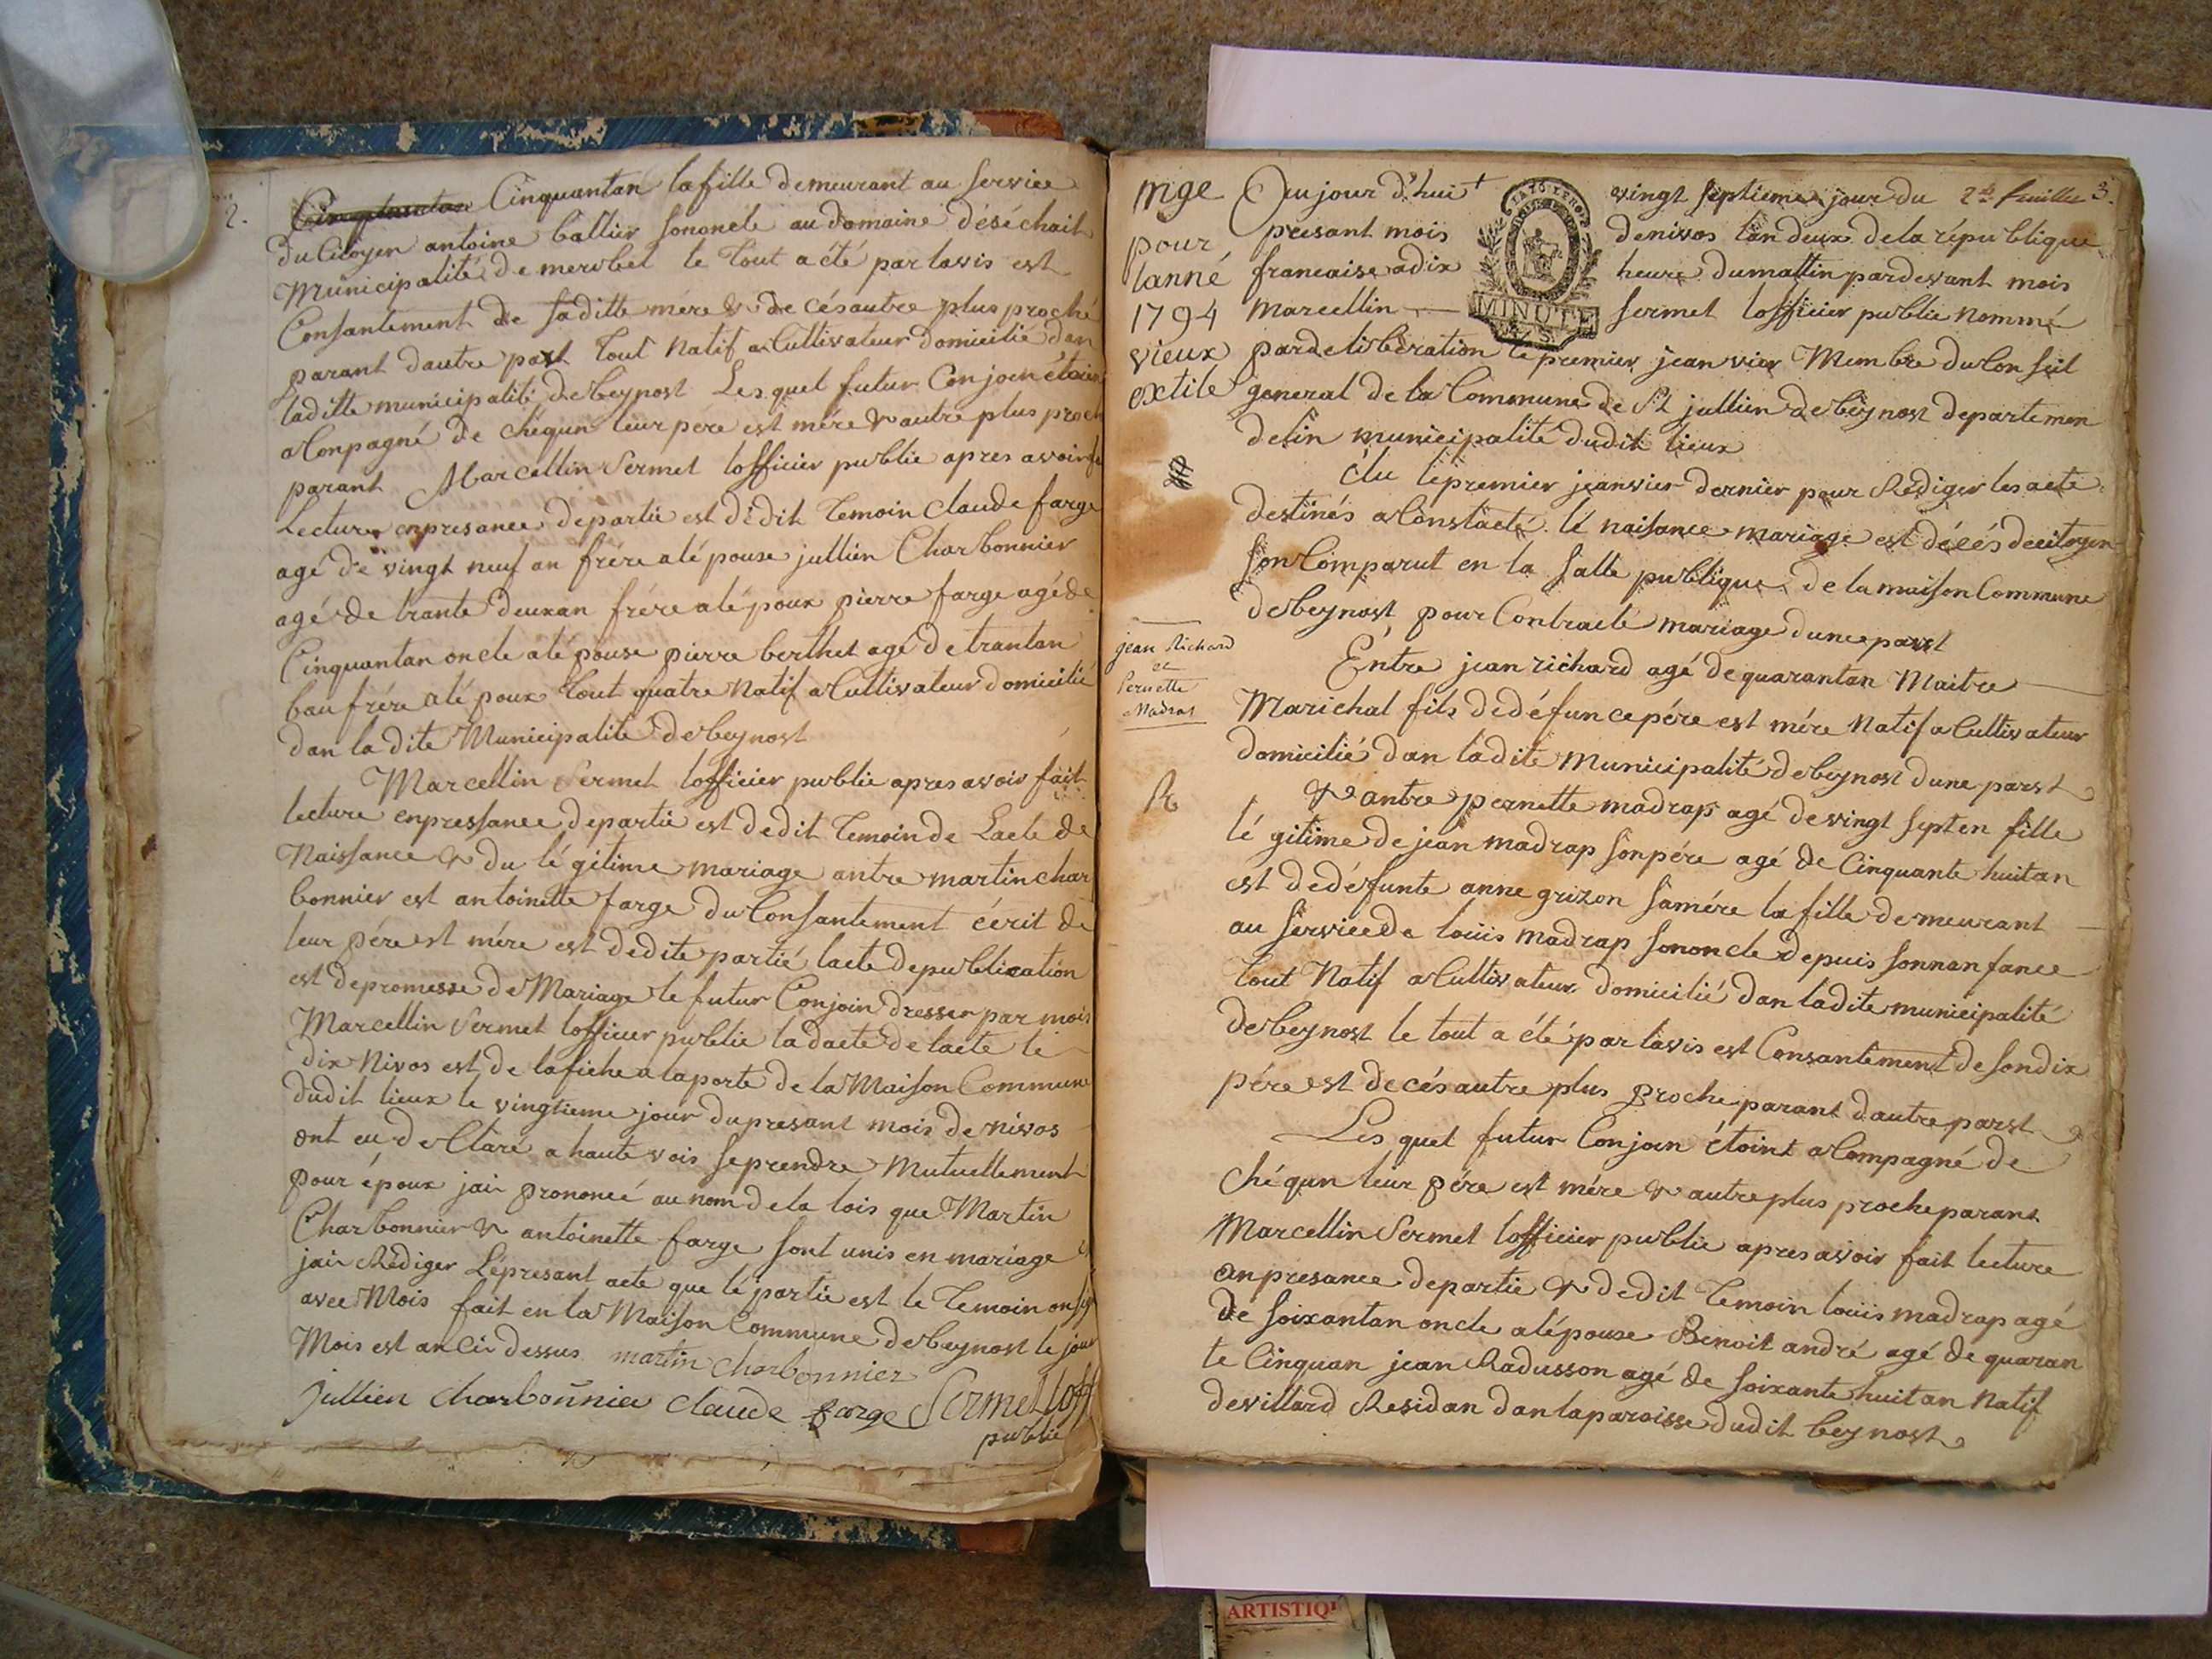 2.
Cinquantan la fille demeurant au service
du Citoyen antoine ballier sononcle au domaine déséchait
Municipalité de merobel le tout a été par lavis est
Consantement de saditte mére & de césautre plus proché
parant dautre part tout Natif a Cultivateur domicilié dan
laditte municipalité de beynost Les quel futur Conjoin étoint
a Conpagné de chéqun leur pére est mére & autre plus proch
parant Marcellin Sermet lofficier public apres avoir
Lecture enpresance departie est dédit temoin claude farge
agé de vingt neuf an frére alé pouse jullien Charbonnier
agé de trante deuxan frére alépoux pierre farge agé de
Cinquantan oncle alé pouse pierre berthet agé de trantan
baufrére alé poux tout quatre Natif a Cultivateur domicilié
dan la dite Municipalité de beynost
Marcellin Sermet lofficier public apres avoir fait
lecture enpressance departie est dedit temoin de Lacte de
Naissance & du lé gitime mariage antre martin char
bonnier est antoinette farge du Consantement écrit de
leur pére est mére est dedite partié lacte depublication
est depromesse de Mariage le futur Conjoin dresser par mois
Marcellin Sermet lofficier public ladacte de lacte le
dix Nivos est de lafiche a laporte de la Maison Commune
dudit lieux le vingtieme jour dupresant mois de nivos
ont eu de Claré a haute vois seprendre Mutuellement
pour époux jair prononcé au nom de la lois que Martin
Charbonnier & antoinette farge sont unis en mariage
jair Rédiger Lépresant acte que lé partie est le temoin on
avec Mois fait en la Maison Commune de beynost le jour
Mois est an Cir dessus martin charbonnier
jullien charbonnier claude farge Sermet loff
public
mge
pour
lanné
1794
vieux
extile
Aujour d'hui vingt septieme jour du 2de feuille 3.
presant mois denivos lan deux de la république
francaise adix heure dumattin pardevant mois
Marcellin Sermet lofficier public nommé
MINUTE
par delibération le premier jeanvier Membre du Conseil
general de la Commune de St jullien de beynost departemen
delin municipalite dudit lieux
élu lépremier jeanvier dernier pour Rédiger les acte
destinés a Constacté lé naisance mariage est décés decitoyen
son Comparut en la salle publique de la maison Commune
de beynost pour Contracté mariage dune parst
jean Richard
et
Pernette
Madras
Entre jean richard agé de quarantan Maitre
Marichal fils dedéfuncepére est mére Natif a Cultivateur
domicilié dan ladite Municipalité de beynost dune parst
& antre pernette madrap agé de vingt septen fille
lé gitime de jean madrap sonpére agé de Cinquante huitan
est dedéfunte anne grizon samére la fille demeurant
au service de loüis madrap sononcle depuis sonnanfance
tout Natif a Cultivateur domicilié dan ladite municipalité
de beynost le tout a été par lavis est Consantement de sondix
pére est decésautre plus proche parant dautre parst
Les quel futur Conjoin étoint a Compagné de
Chéqun leur pére est mére & autre plus proche parant
Marcellin Sermet lofficier public apres avoir fait lecture
anpresance departie & dedit temoin loüis madrap agé
de soixantan oncle alépouse Benoit andré agé de quaran
te Cinquan jean Radusson agé de soixante huitan Natif
devillard Residan dan laparoisse dudit beynost
ARTISTIQ